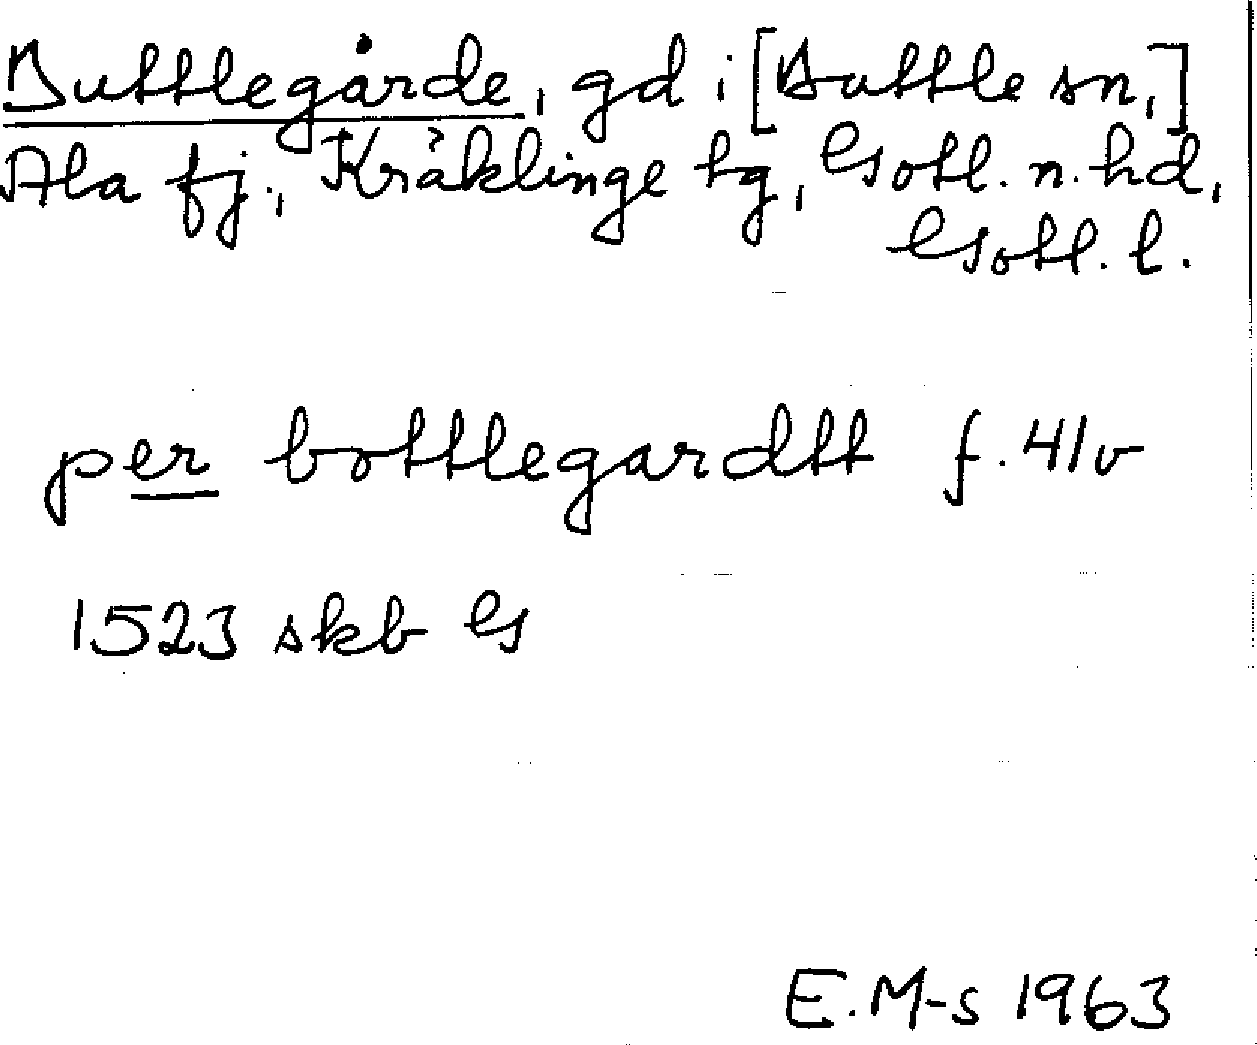 Buttlegårde, gd i [Buttle sn,]
Ala fj., Kräklinge tg, Gotl. n. hd,
Gotl. l.
per bottlegardtt f. 41v
1523 skb G
E.M-s 1963